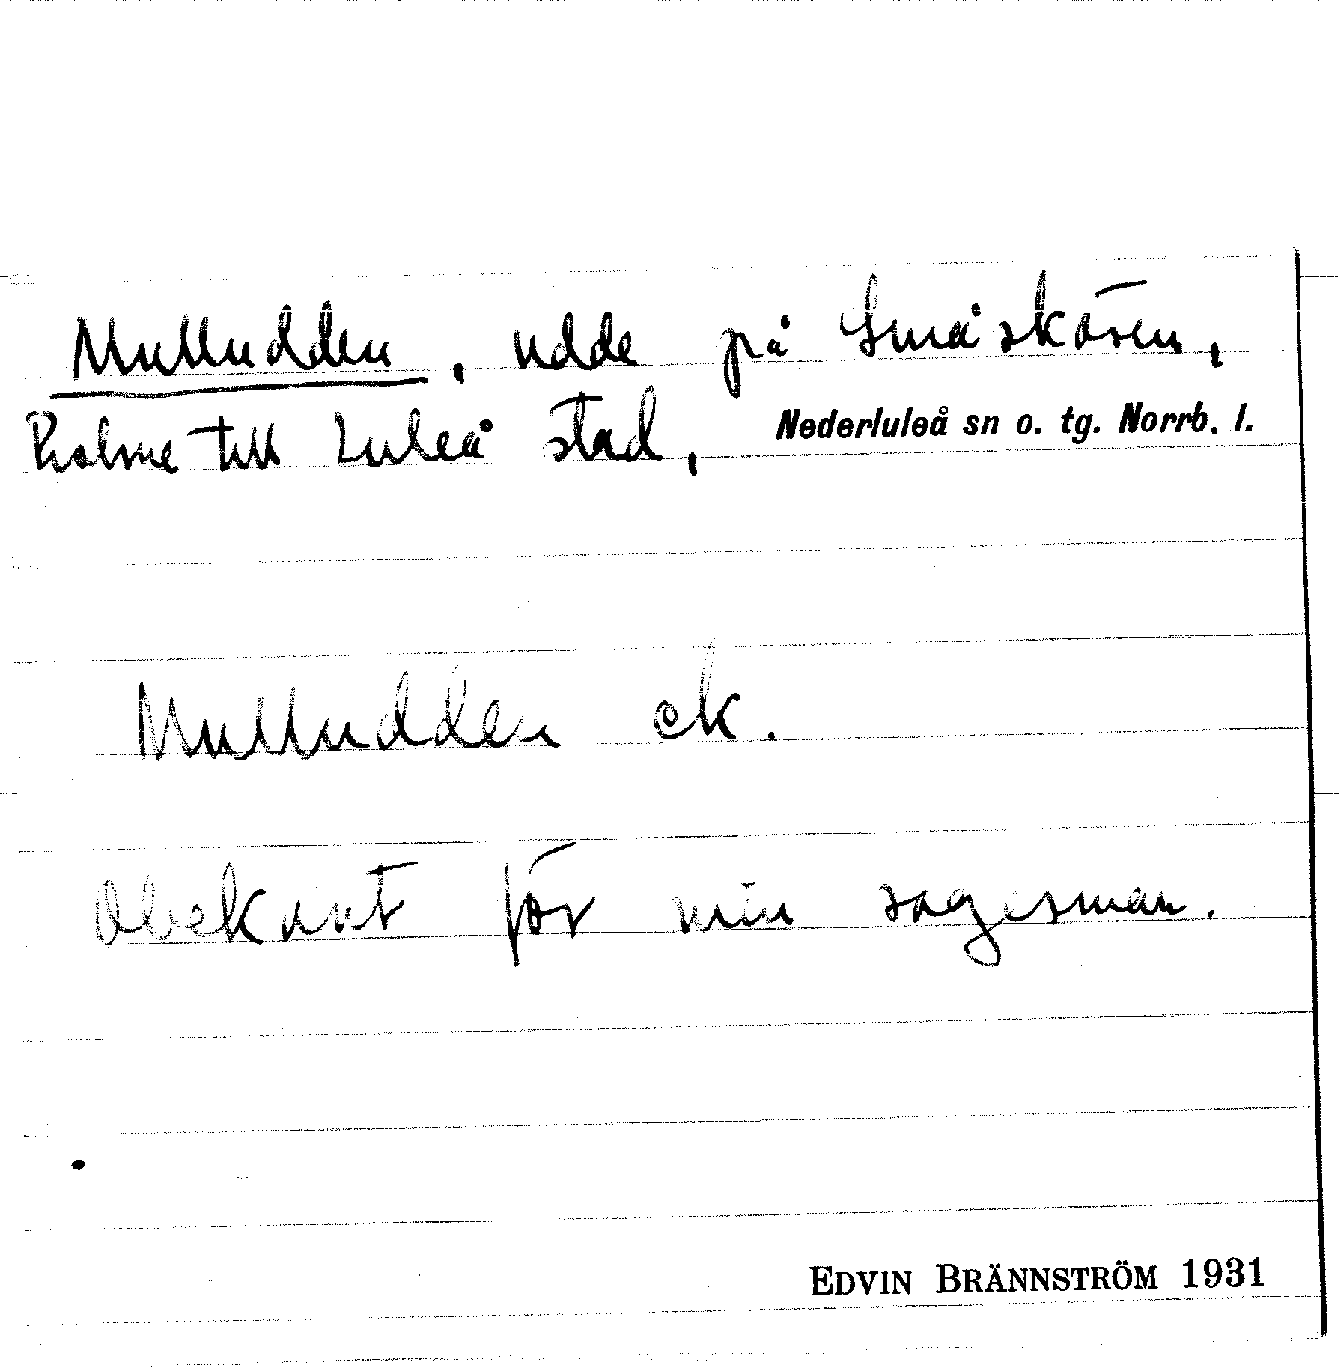 Mulludden, udde på Småskären,
holme till Luleå stad, Nederluleå sn o. tg. Norrb. l.
Mulludden ek.
Obekant för min sagesman.
EDVIN BRÄNNSTRÖM 1931